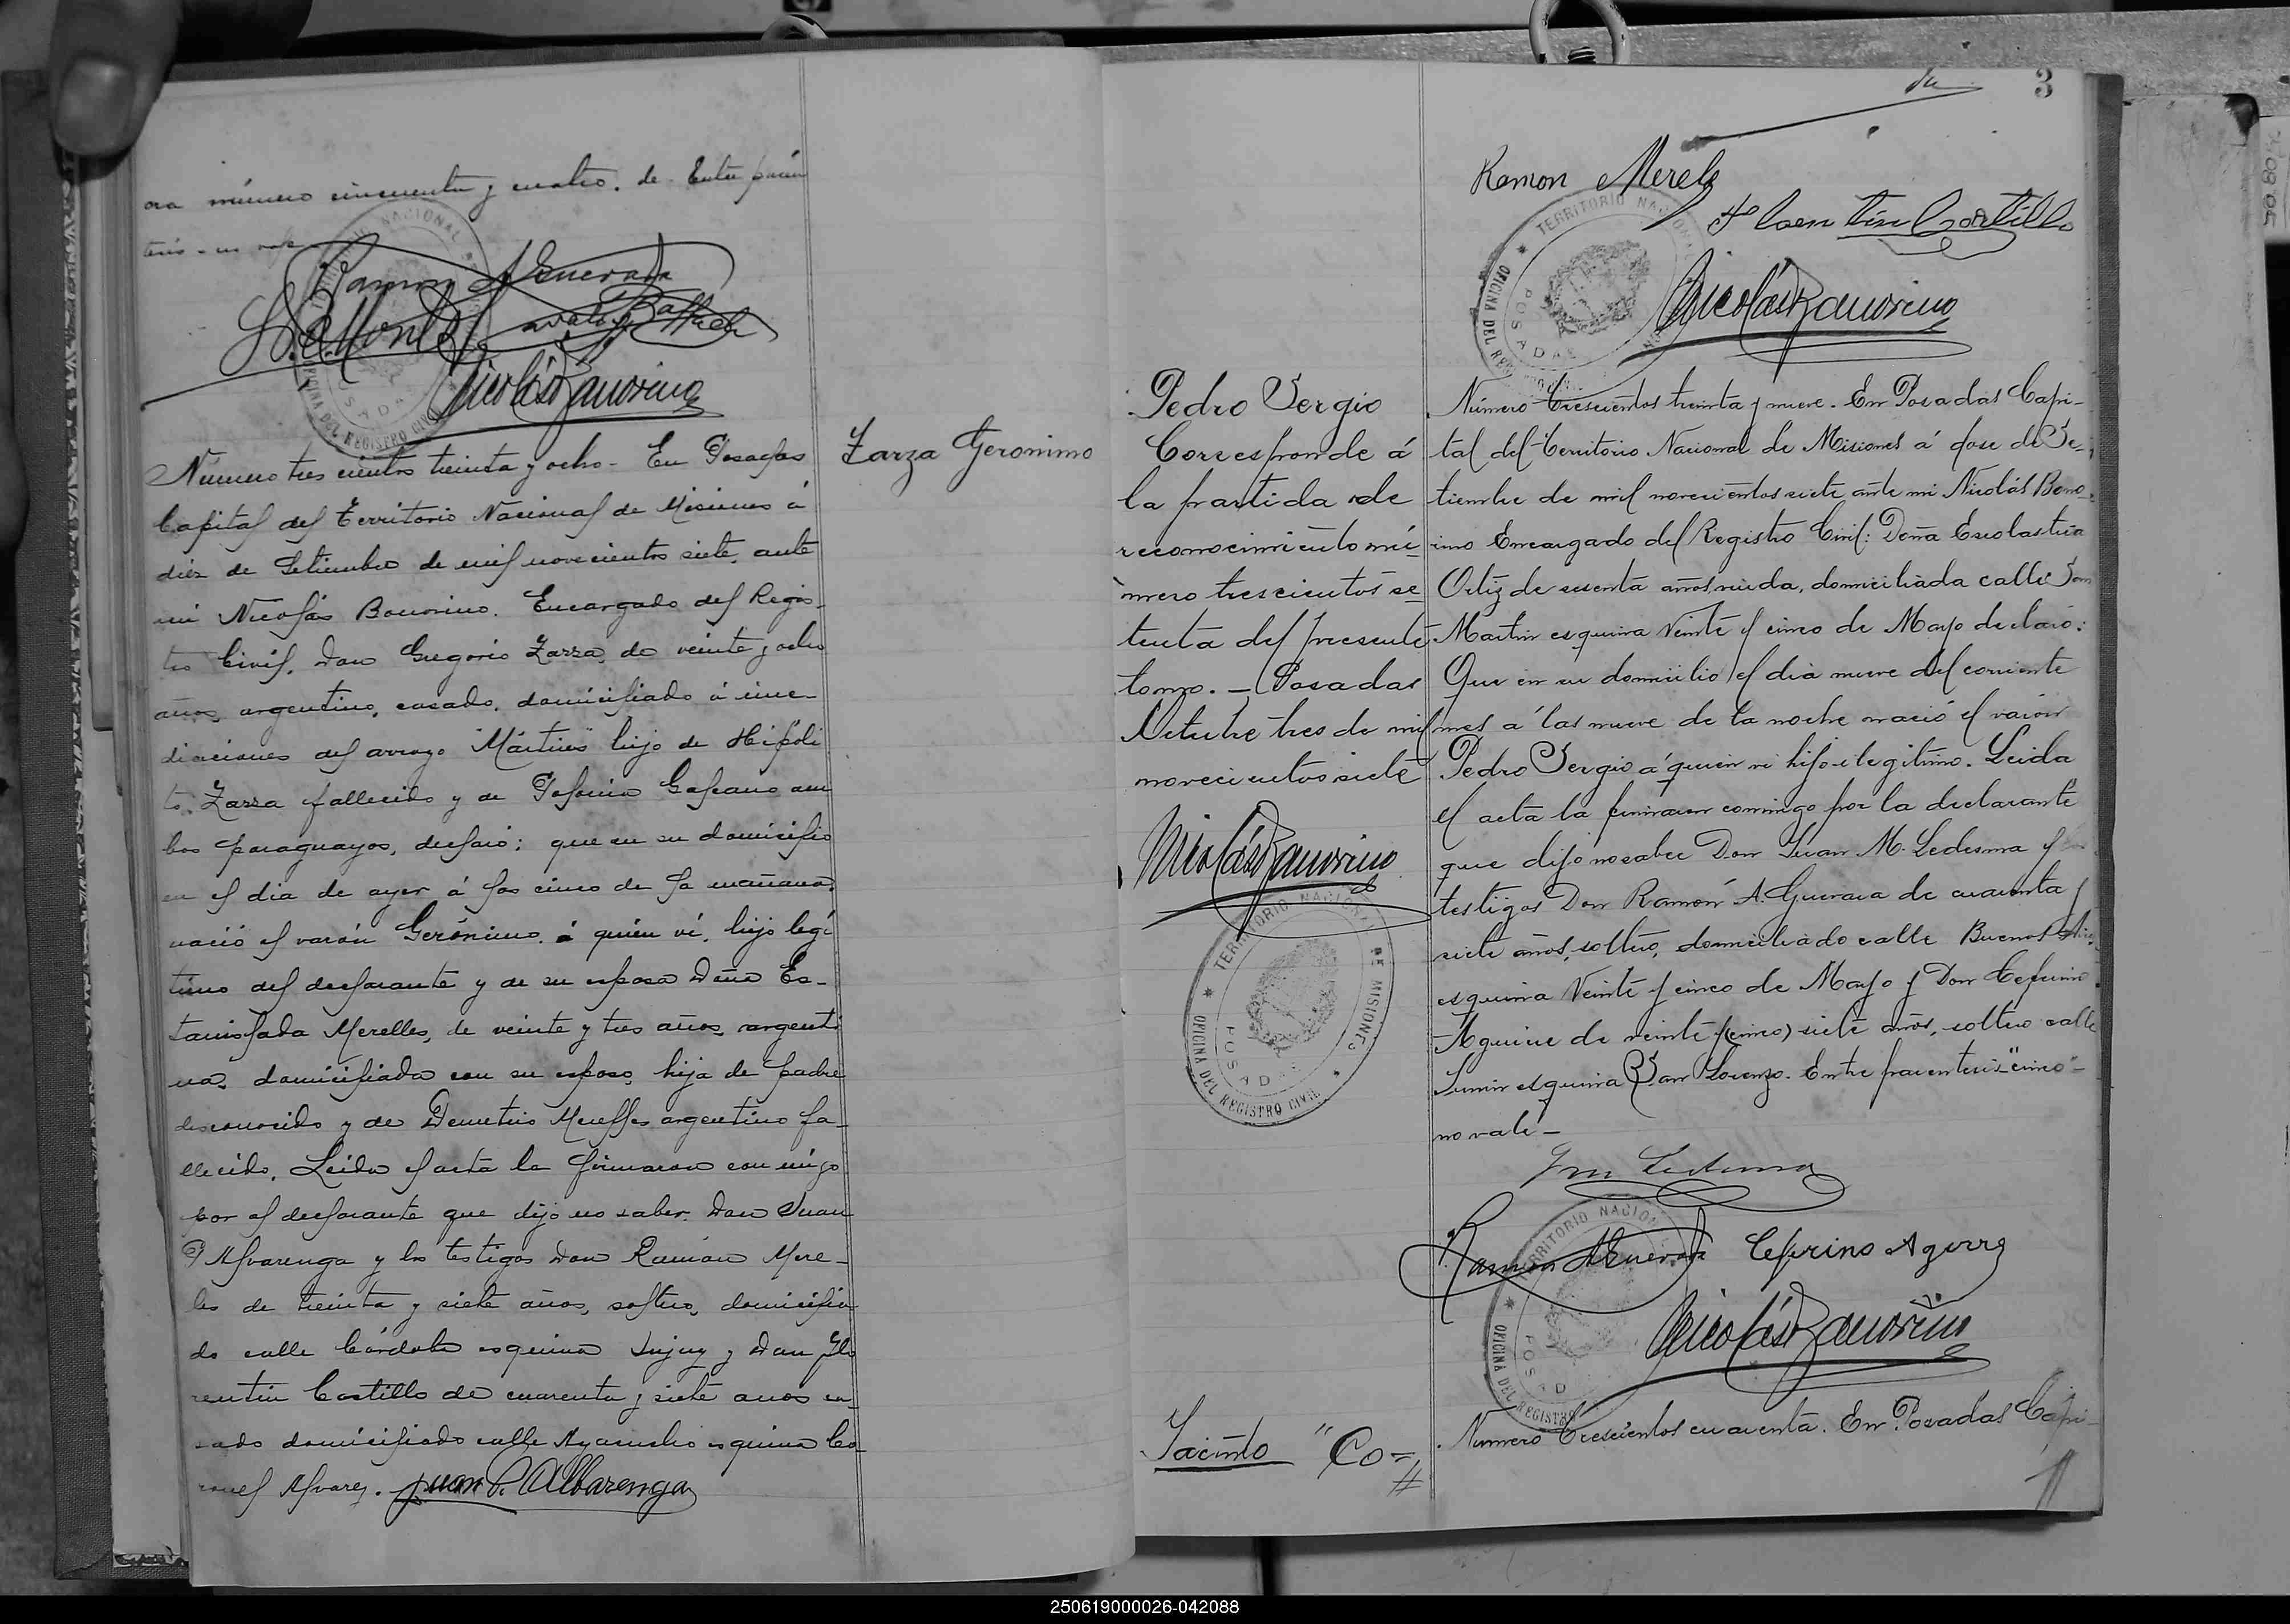 ora número cincuenta y cuatro. de Entre parén
tesis - no vale
Ramon A Guevara
Nicolás Bonorino
Número tres cientos treinta y ocho - En Posadas
Capital del Territorio Nacional de Misiones á
diez de Setiembre de mil novecientos siete, ante
mi Nicolás Bonorino. Encargado del Regis-
tro Civil, Don Gregorio Zarza, de veinte y ocho
años, argentino, casado, domiciliado á inme-
diaciones del arroyo "Mártires" hijo de Hipóli
to Zarza fallecido y de Galeano am
bos paraguayos, declaró: que en su domicilio
en el dia de ayer á las cinco de la mañana,
nació el varón Gerónimo, á quién ví, hijo legí
timo del declarante y de su esposa Doña Es-
tanislada Merelles, de veinte y tres años, argenti
na, domiciliada con su esposo, hija de padre
desconocido y de Demetrio Merelles argentino fa-
llecido. Leida el acta la firmaron con migo
por el declarante que dijo no saber, Don Juan
P Alvarenga y los testigos Don Ramón Mere-
les de treinta y siete años, soltero, domicilia
do calle Córdoba esquina Jujuy y Don Flo
rentin Castillo de cuarenta y siete años ca-
sado domiciliado calle Ayacucho esquina Co-
ronel Alvarez. Juan P. Albarenga
Zarza Geronimo
3
Ramon Merele
Floentin Castillo
Nicolás Bonorino
TERRITORIO NACIONAL DE MISIONES
OFICINA DEL REGISTRO CIVIL
POSADAS
Pedro Sergio
Corresponde á
la partida de
reconocimiento nú-
mero trescientos se-
tenta del presente
tomo. - Posadas
Octubre tres de mil
novecientos siete
Nicolás Bonorino
TERRITORIO NACIONAL DE MISIONES
OFICINA DEL REGISTRO CIVIL
POSADAS
Número trescientos treinta y nueve. En Posadas Capi-
tal del Territorio Nacional de Misiones á dose de Se-
tiembre de mil novecientos siete ante mi Nicolás Bono-
rino Encargado del Registro Civil: Doña Escolastica
Ortiz de años, viuda, domiciliada calle San
Martin esquina Veinte y cinco de Mayo declaró:
Que en su domicilio el dia nueve del corriente
mes a las nueve de la noche nació el varón
Pedro Sergio á quien vi hijo ilegitimo. Leida
el acta la firmaron conmigo por la declarante
que dijo no saber Don Juan M. Ledesma y los
testigos Don Ramón A. Guevara de cuarenta y
siete años, soltero, domiciliado calle Buenos Aires
esquina Veinte y cinco de Mayo y Don Ceferino
Aguirre de veinte y (cinco) siete años, soltero calle
Junin esquina San Lorenzo. Entre parentesis "cinco" -
no vale -
Jm Ledesma
Ramon A Guevara Ceferino Agirre
Nicolás Bonorino
Jacinto "Co=
Número trescientos cuarenta. En Posadas Capi-
250619000026-042088